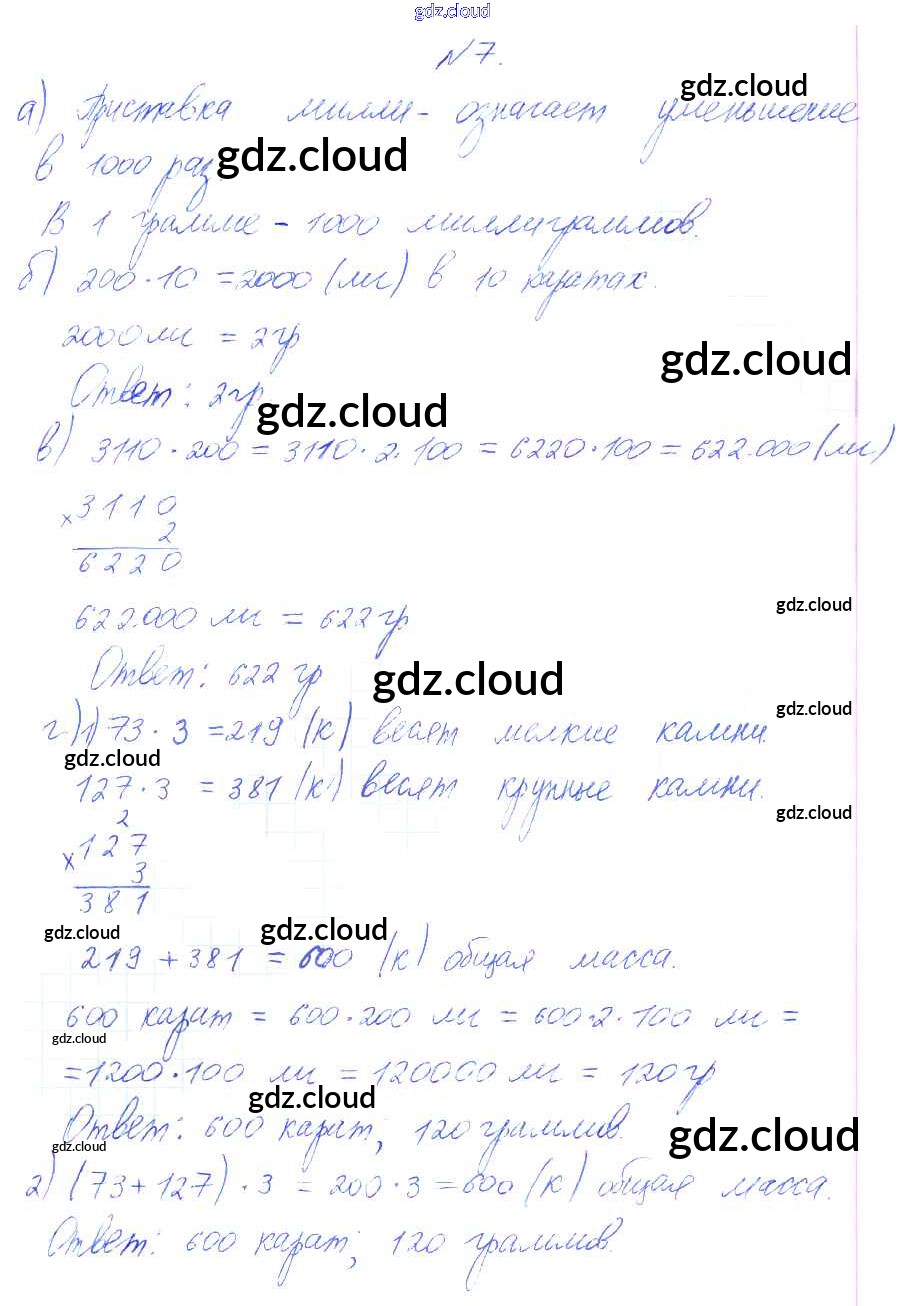 gdz.cloud
N7.
gdz.cloud
а) Приставка милли- означает уменьшение
в 1000 раз gdz.cloud
В 1 грамме - 1000 миллиграммов.
б) 200 · 10 = 2000 (мг) в 10 каратах.
2000 мг = 2 гр
gdz.cloud
Ответ: 2 гр.
gdz.cloud
в) 3110 · 200 = 3110 · 2 · 100 = 6220 · 100 = 622.000 (мг)
× 3110
2
6220
gdz.cloud
622.000 мг = 622 гр
Ответ: 622 гр
gdz.cloud
gdz.cloud
г) 1) 73 · 3 = 219 (к) весят мелкие камни.
gdz.cloud
127 · 3 = 381 (к) весят крупные камни.
gdz.cloud
2
× 127
3
381
gdz.cloud gdz.cloud
219 + 381 = 600 (к) общая масса.
600 карат = 600 · 200 мг = 600 · 2 · 100 мг =
gdz.cloud
= 1200 · 100 мг = 120000 мг = 120 гр
gdz.cloud
Ответ: 600 карат; 120 граммов.
gdz.cloud
gdz.cloud
2) (73 + 127) · 3 = 200 · 3 = 600 (к) общая масса.
Ответ: 600 карат; 120 граммов.